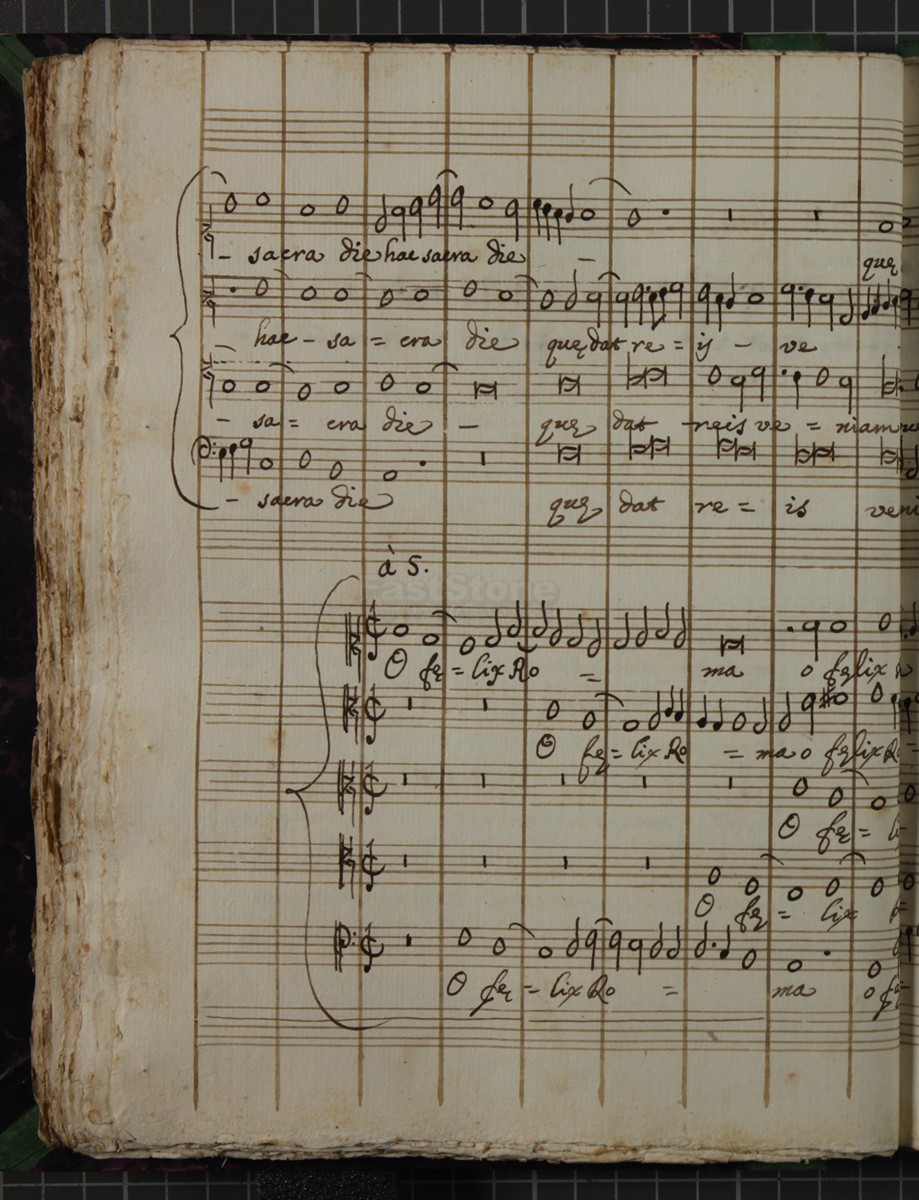 - sacra die hac sacra die -
que
- hac - sa = cra die quę dat re = is - ve
- sa = cra die - quę dat reis ve = niam
- sacra die quę dat re = is veni
à 5.
O fę = lix Ro = ma o fęlix
O fę = lix Ro = ma o fęlix Ro =
O fę = li
O fę = lix
O fę = lix Ro = ma o fę
FastStone